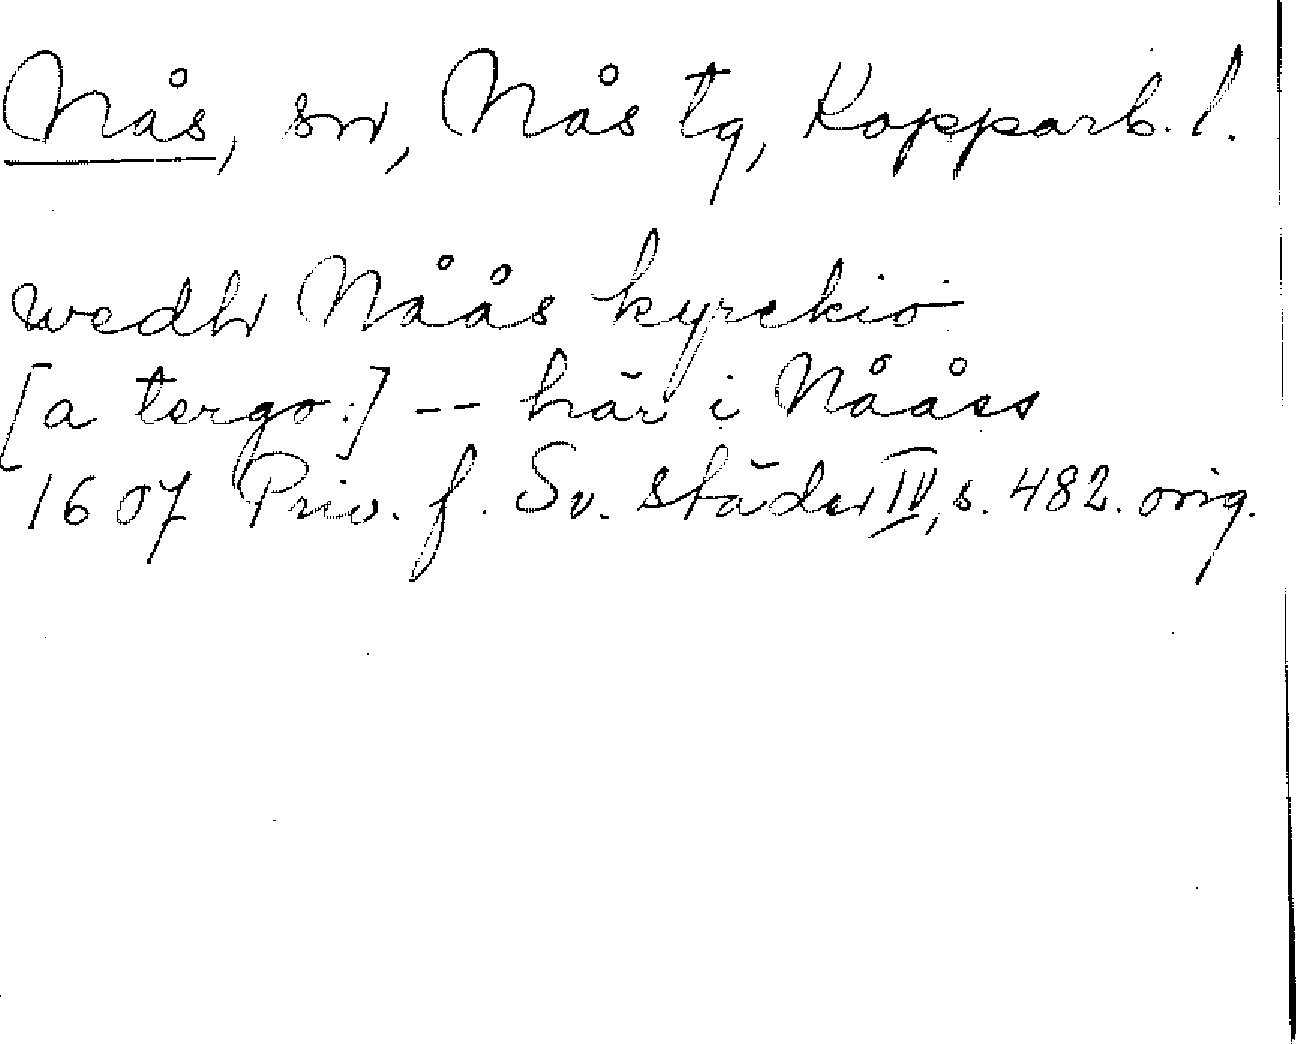 Nås, sn, Nås tg, Kopparb. l.
wedh Nåås kyrckio
[a tergo:] -- här i Nååss
1607 Priv. f. Sv. städer IV, s. 482. orig.